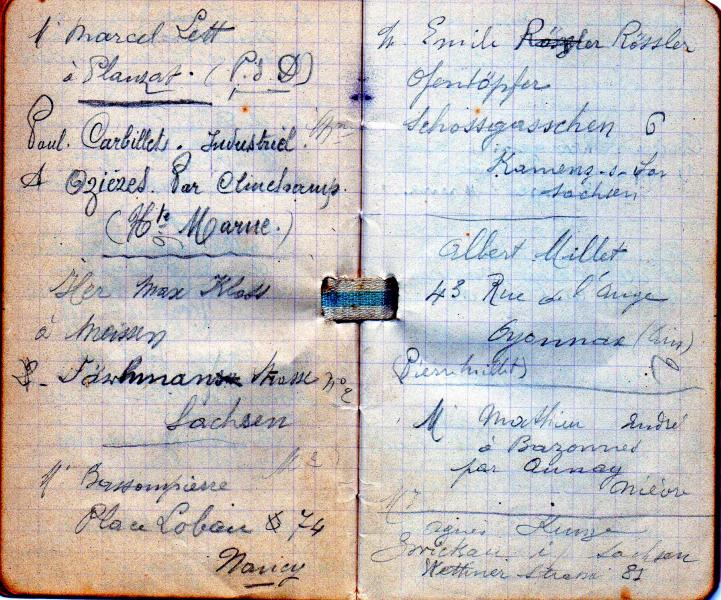 Mr Marcel Lett
à Plauzat. (P. d D)
Paul. Carbillet. Industriel.
A Ozières. Par Clinchamp.
(Hte Marne.)
Her Max Kloss
à Meissen
Strasse No 2
Sachsen
Mr Bassompierre
Place Lobau 74
Nancy
Emile Rössler
Ofentöpfer
Schossgasschen 6
Kamenz
Sachsen
Albert Millet
43 Rue de l'Ange
Oyonnax (Ain)
(Pierre Millet)
Mr Mathieu André
à Bazonnes
par Aunay
Nièvre
Agnès Kunze
Zwickau i Sachsen
Wettiner Strasse 81